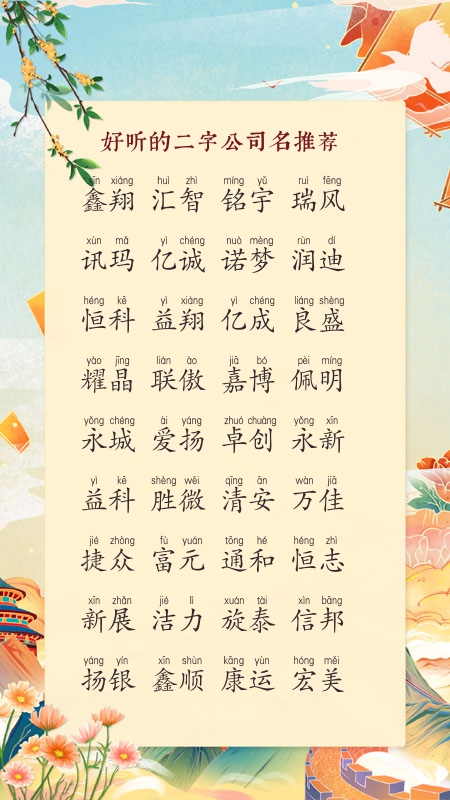 好听的二字公司名推荐
xīn xiáng huì zhì míng yǔ ruì fēng
鑫翔 汇智 铭宇 瑞风
xùn mǎ yì chéng nuò mèng rùn dí
讯玛 亿诚 诺梦 润迪
héng kē yì xiáng yì chéng liáng shèng
恒科 益翔 亿成 良盛
yào jīng lián ào jiā bó pèi míng
耀晶 联傲 嘉博 佩明
yǒng chéng ài yáng zhuó chuàng yǒng xīn
永城 爱扬 卓创 永新
yì kē shèng wēi qīng ān wàn jiā
益科 胜微 清安 万佳
jié zhòng fù yuán tōng hé héng zhì
捷众 富元 通和 恒志
xīn zhǎn jié lì xuán tài xìn bāng
新展 洁力 旋泰 信邦
yáng yín xīn shùn kāng yùn hóng měi
扬银 鑫顺 康运 宏美